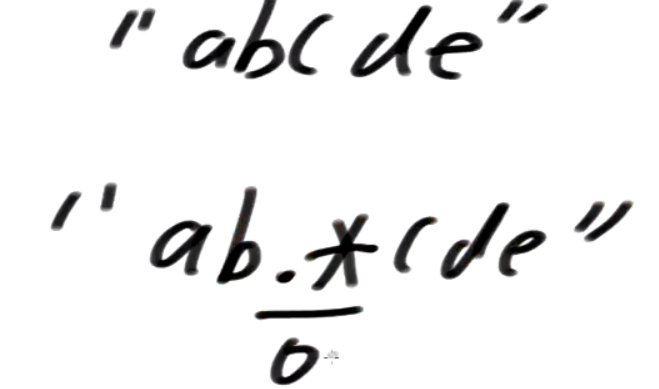 "abcde"
"ab.*cde"
0